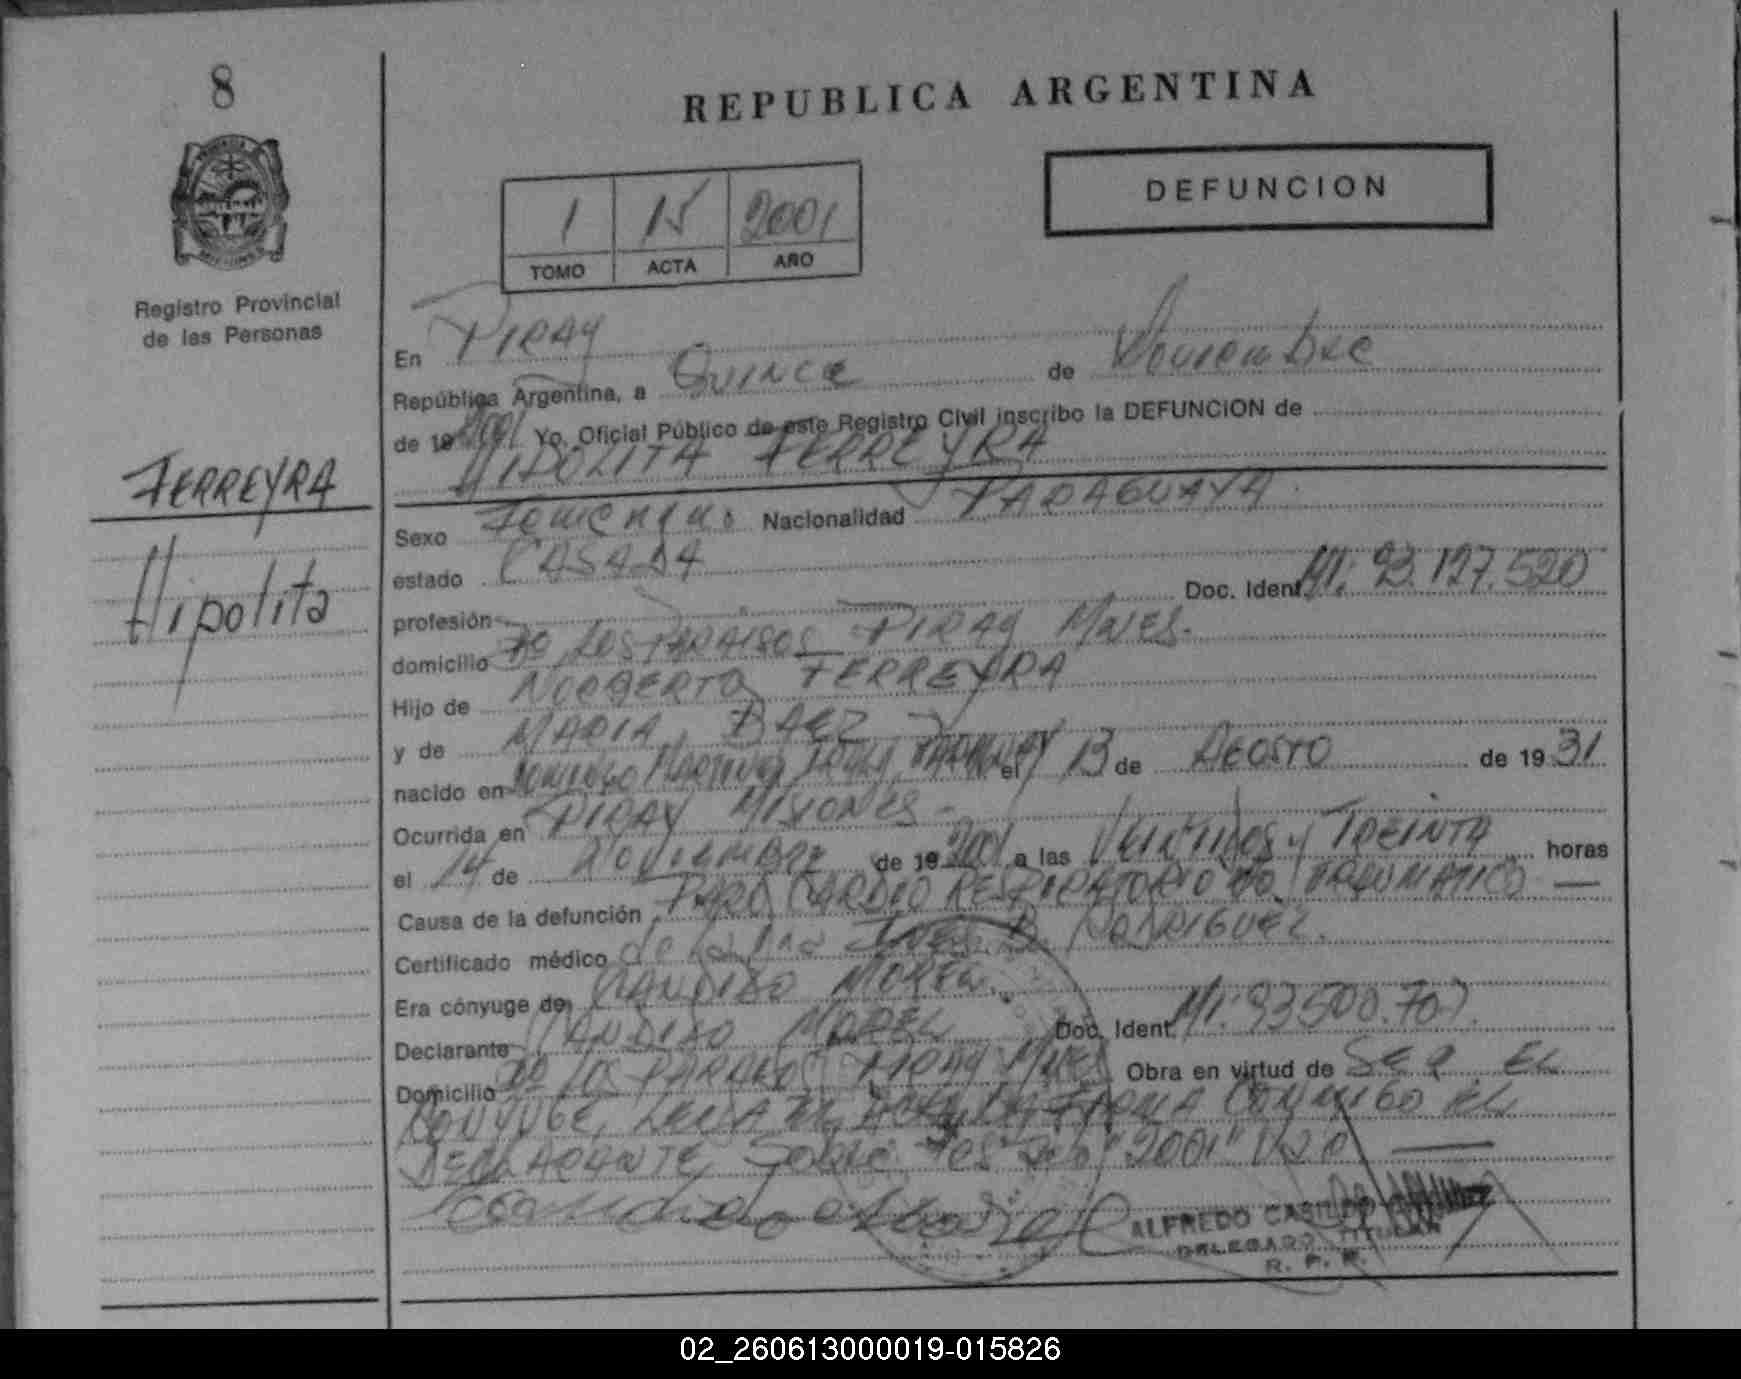 8
REPUBLICA ARGENTINA
DEFUNCION
1 15 2001
TOMO ACTA AÑO
Registro Provincial
de las Personas
En PIRAY
República Argentina, a Quince de Noviembre
de 19 2001 Yo, Oficial Público de este Registro Civil inscribo la DEFUNCION de
HIPOLITA FERREYRA
FERREYRA
Hipolita
Sexo Femenino Nacionalidad PARAGUAYA.
estado CASADA
profesión Doc. Ident. MI: 93.127.520
domicilio Bo LOS PARAISOS PIRAY Mnes.
Hijo de NORBERTO FERREYRA
y de MARIA BAEZ
nacido en DOMINGO MARTINEZ IRALA PARAGUAY el 13 de AGOSTO de 1931
Ocurrida en PIRAY MISIONES -
el 14 de NOVIEMBRE de 19 2001 a las VEINTIDOS y TREINTA horas
Causa de la defunción PARO CARDIO RESPIRATORIO NO TRAUMATICO —
Certificado médico de la Dra INES B. RODRIGUEZ.
Era cónyuge de CANDIDO MOREL.
Declarante CANDIDO MOREL Doc. Ident. MI: 93.500.707.
Domicilio Bo LOS PARAISOS PIRAY Mnes Obra en virtud de SER EL
CONYUGE, LEIDA EL ACTA, LA FIRMA CONMIGO EL
DECLARANTE, Sobre "2001" —
Candido Morel
ALFREDO CASILDO
DELEGADO TITULAR
R. P. P.
02_260613000019-015826